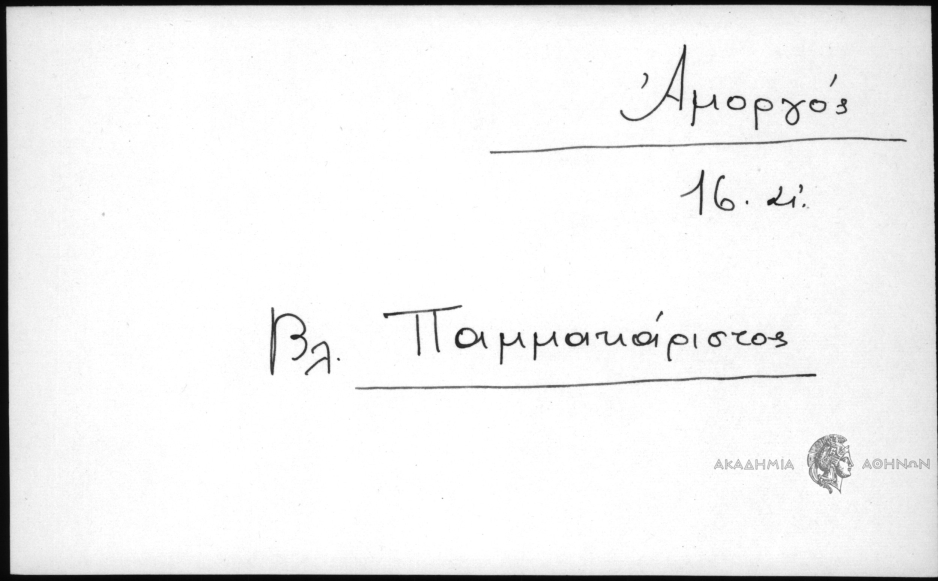 Ἀμοργός
16. αἰ.
Βλ. Παμμακάριστος
ΑΚΑΔΗΜΙΑ ΑΘΗΝΩΝ